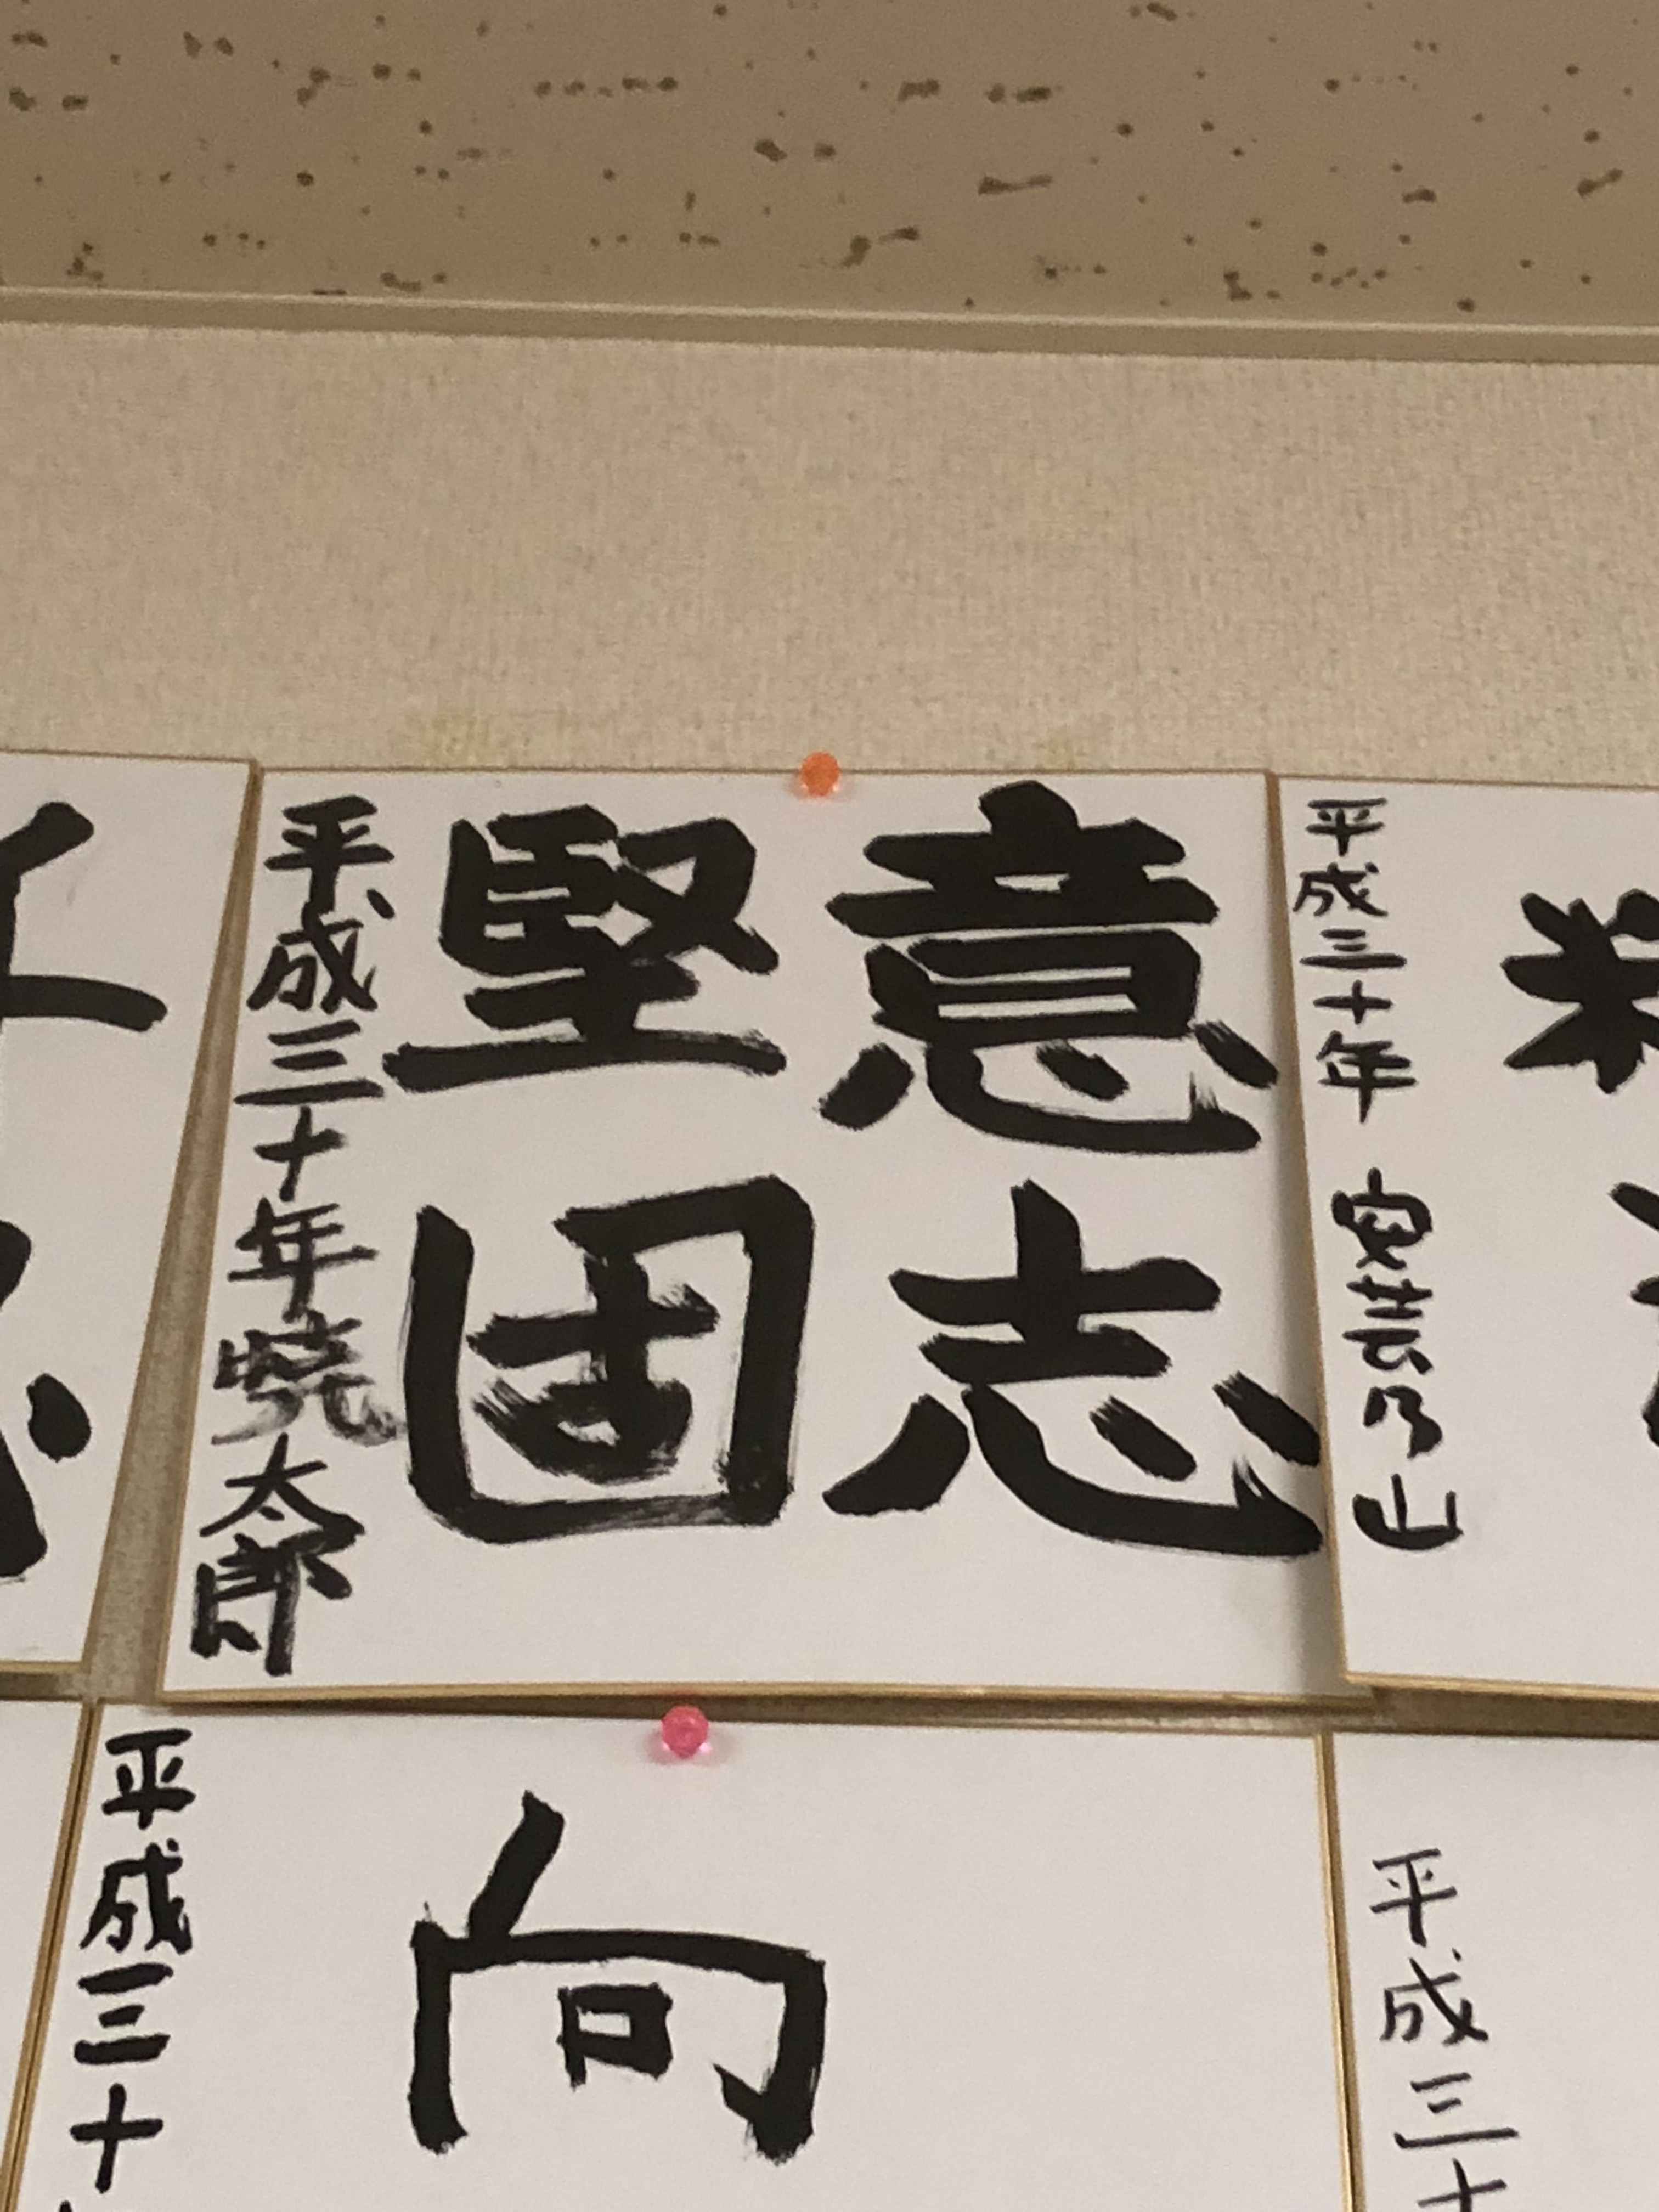 意志
堅固
平成三十年 暁太郎
平成三十年 安芸乃山
向
平成三十
平成三十